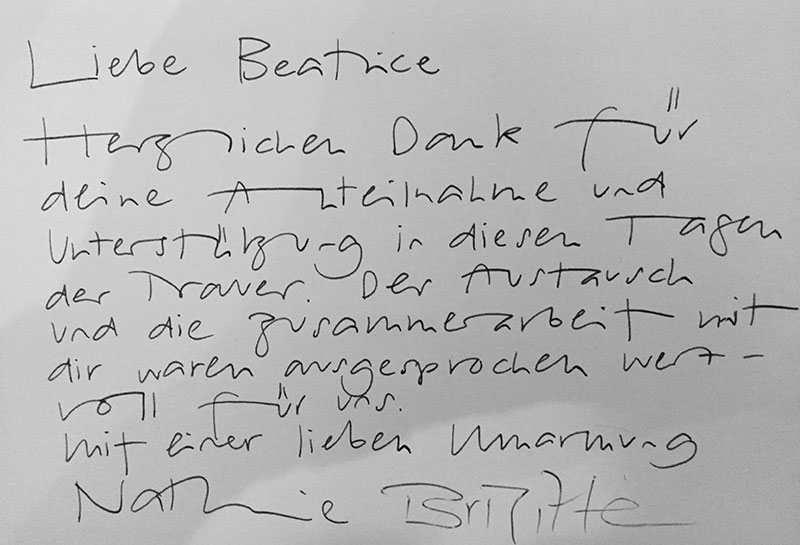 Liebe Beatrice
Herzlichen Dank für
deine Anteilnahme und
Unterstützung in diesen Tagen
der Trauer. Der Austausch
und die Zusammenarbeit mit
dir waren ausgesprochen wert-
voll für uns.
Mit einer lieben Umarmung
Nathalie Brigitte